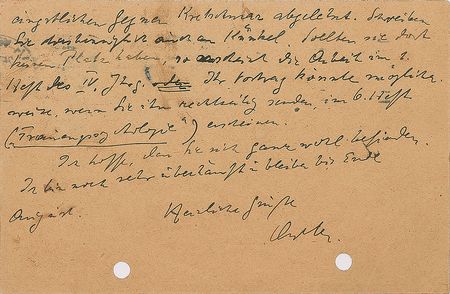 eingeschlichen gegen Kretschmar abgelehnt. Schreiben
Sie diesbezüglich auch an Künkel. Sollten Sie dort
keinen Platz haben, so erscheint die Arbeit im 2.
Heft des IV. Jhrg. oder Ihr Vortrag könnte möglicher-
weise, wenn Sie ihn rechtzeitig senden, im 6. Heft
("Frauenpsychologie") erscheinen.
Ich hoffe, dass Sie sich ganz wohl befinden.
Ich bin noch sehr überhäuft u. bleibe bis Ende
August.
Herzliche Grüße
Adler.